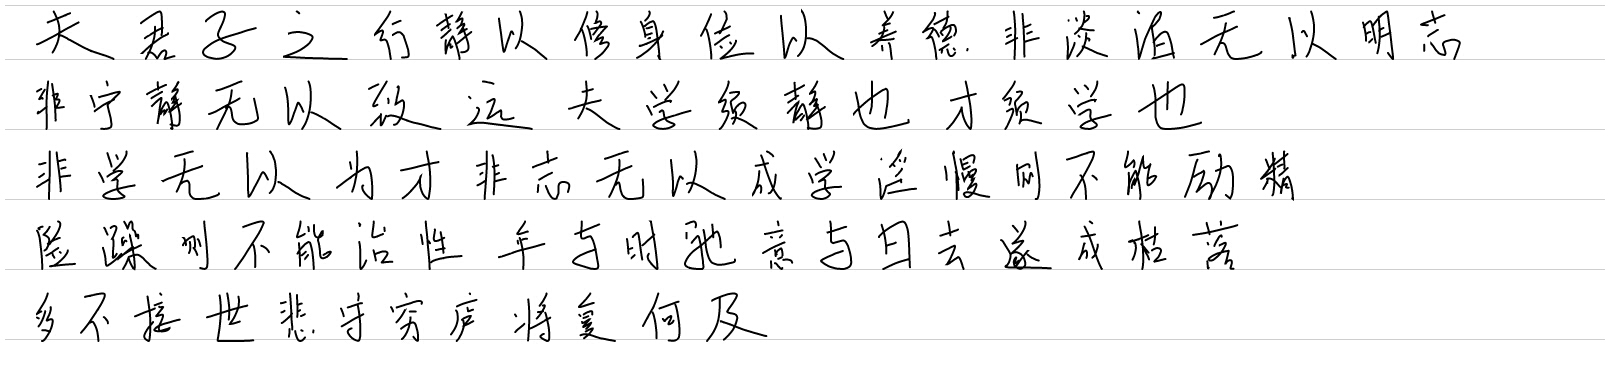 夫君子之行静以修身俭以养德.非淡泊无以明志
非宁静无以致远夫学须静也才须学也
非学无以为才非志无以成学淫慢则不能励精
险躁则不能治性年与时驰意与日去遂成枯落
多不接世悲守穷庐将复何及